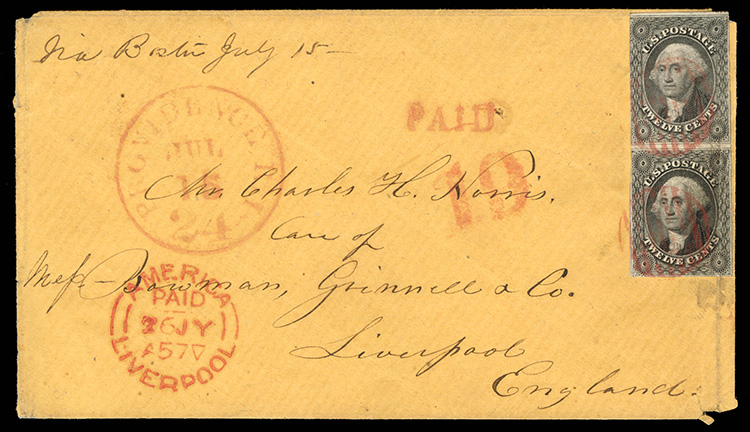 Via Boston July 15
U.S. POSTAGE
TWELVE CENTS
PROVIDENCE R.I.
JUL
24
PAID
19
U.S. POSTAGE
TWELVE CENTS
Mr. Charles H. Norris.
Care of
Mess Bowman, Grinnell & Co.
Liverpool
England.
AMERICA
PAID
26JY
A57V
LIVERPOOL